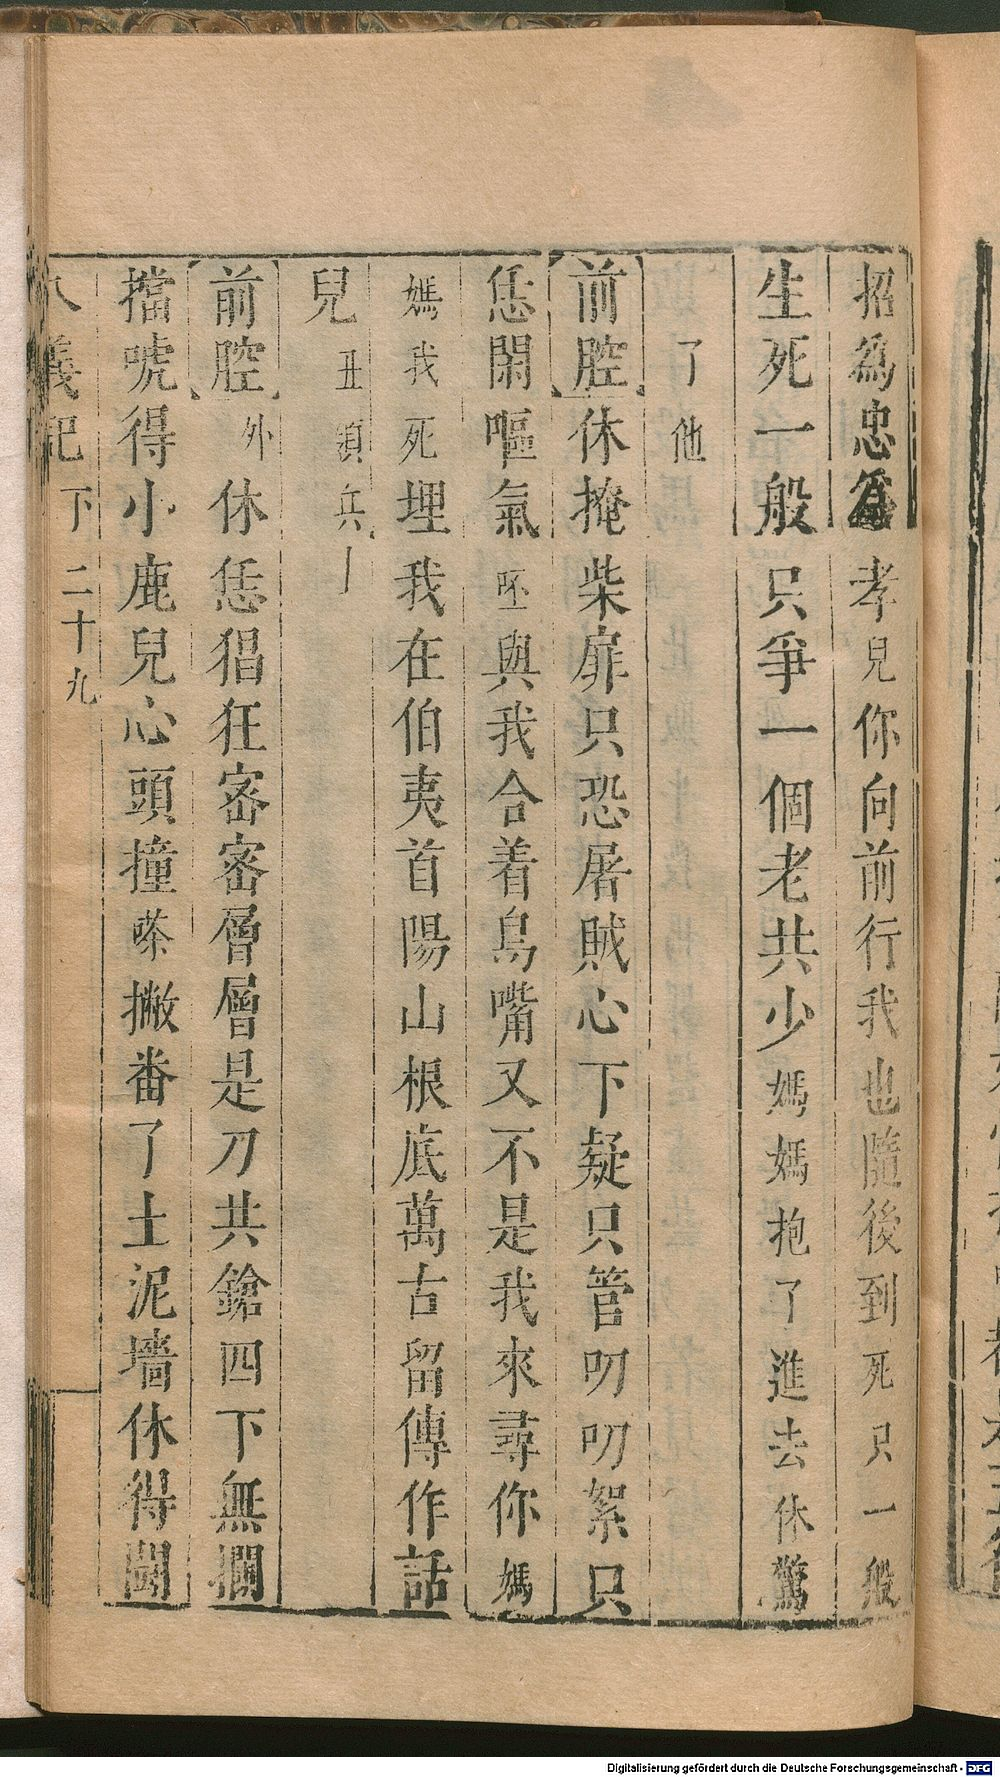 招爲忠爲孝兒你向前行我也隨後到死只一般
生死一般只爭一個老共少媽媽抱了進去休驚
了他
前腔休掩柴扉只恐屠賊心下疑只管叨叨絮只
恁閑嘔氣呸與我合着鳥嘴又不是我來尋你媽
媽我死埋我在伯夷首陽山根底萬古留傳作話
兒丑領兵丨
前腔外休恁猖狂密密層層是刀共鎗四下無攔
擋唬得小鹿兒心頭撞㗳撇番了土泥墻休得鬧
八義記下二十九
Digitalisierung gefördert durch die Deutsche Forschungsgemeinschaft - DFG